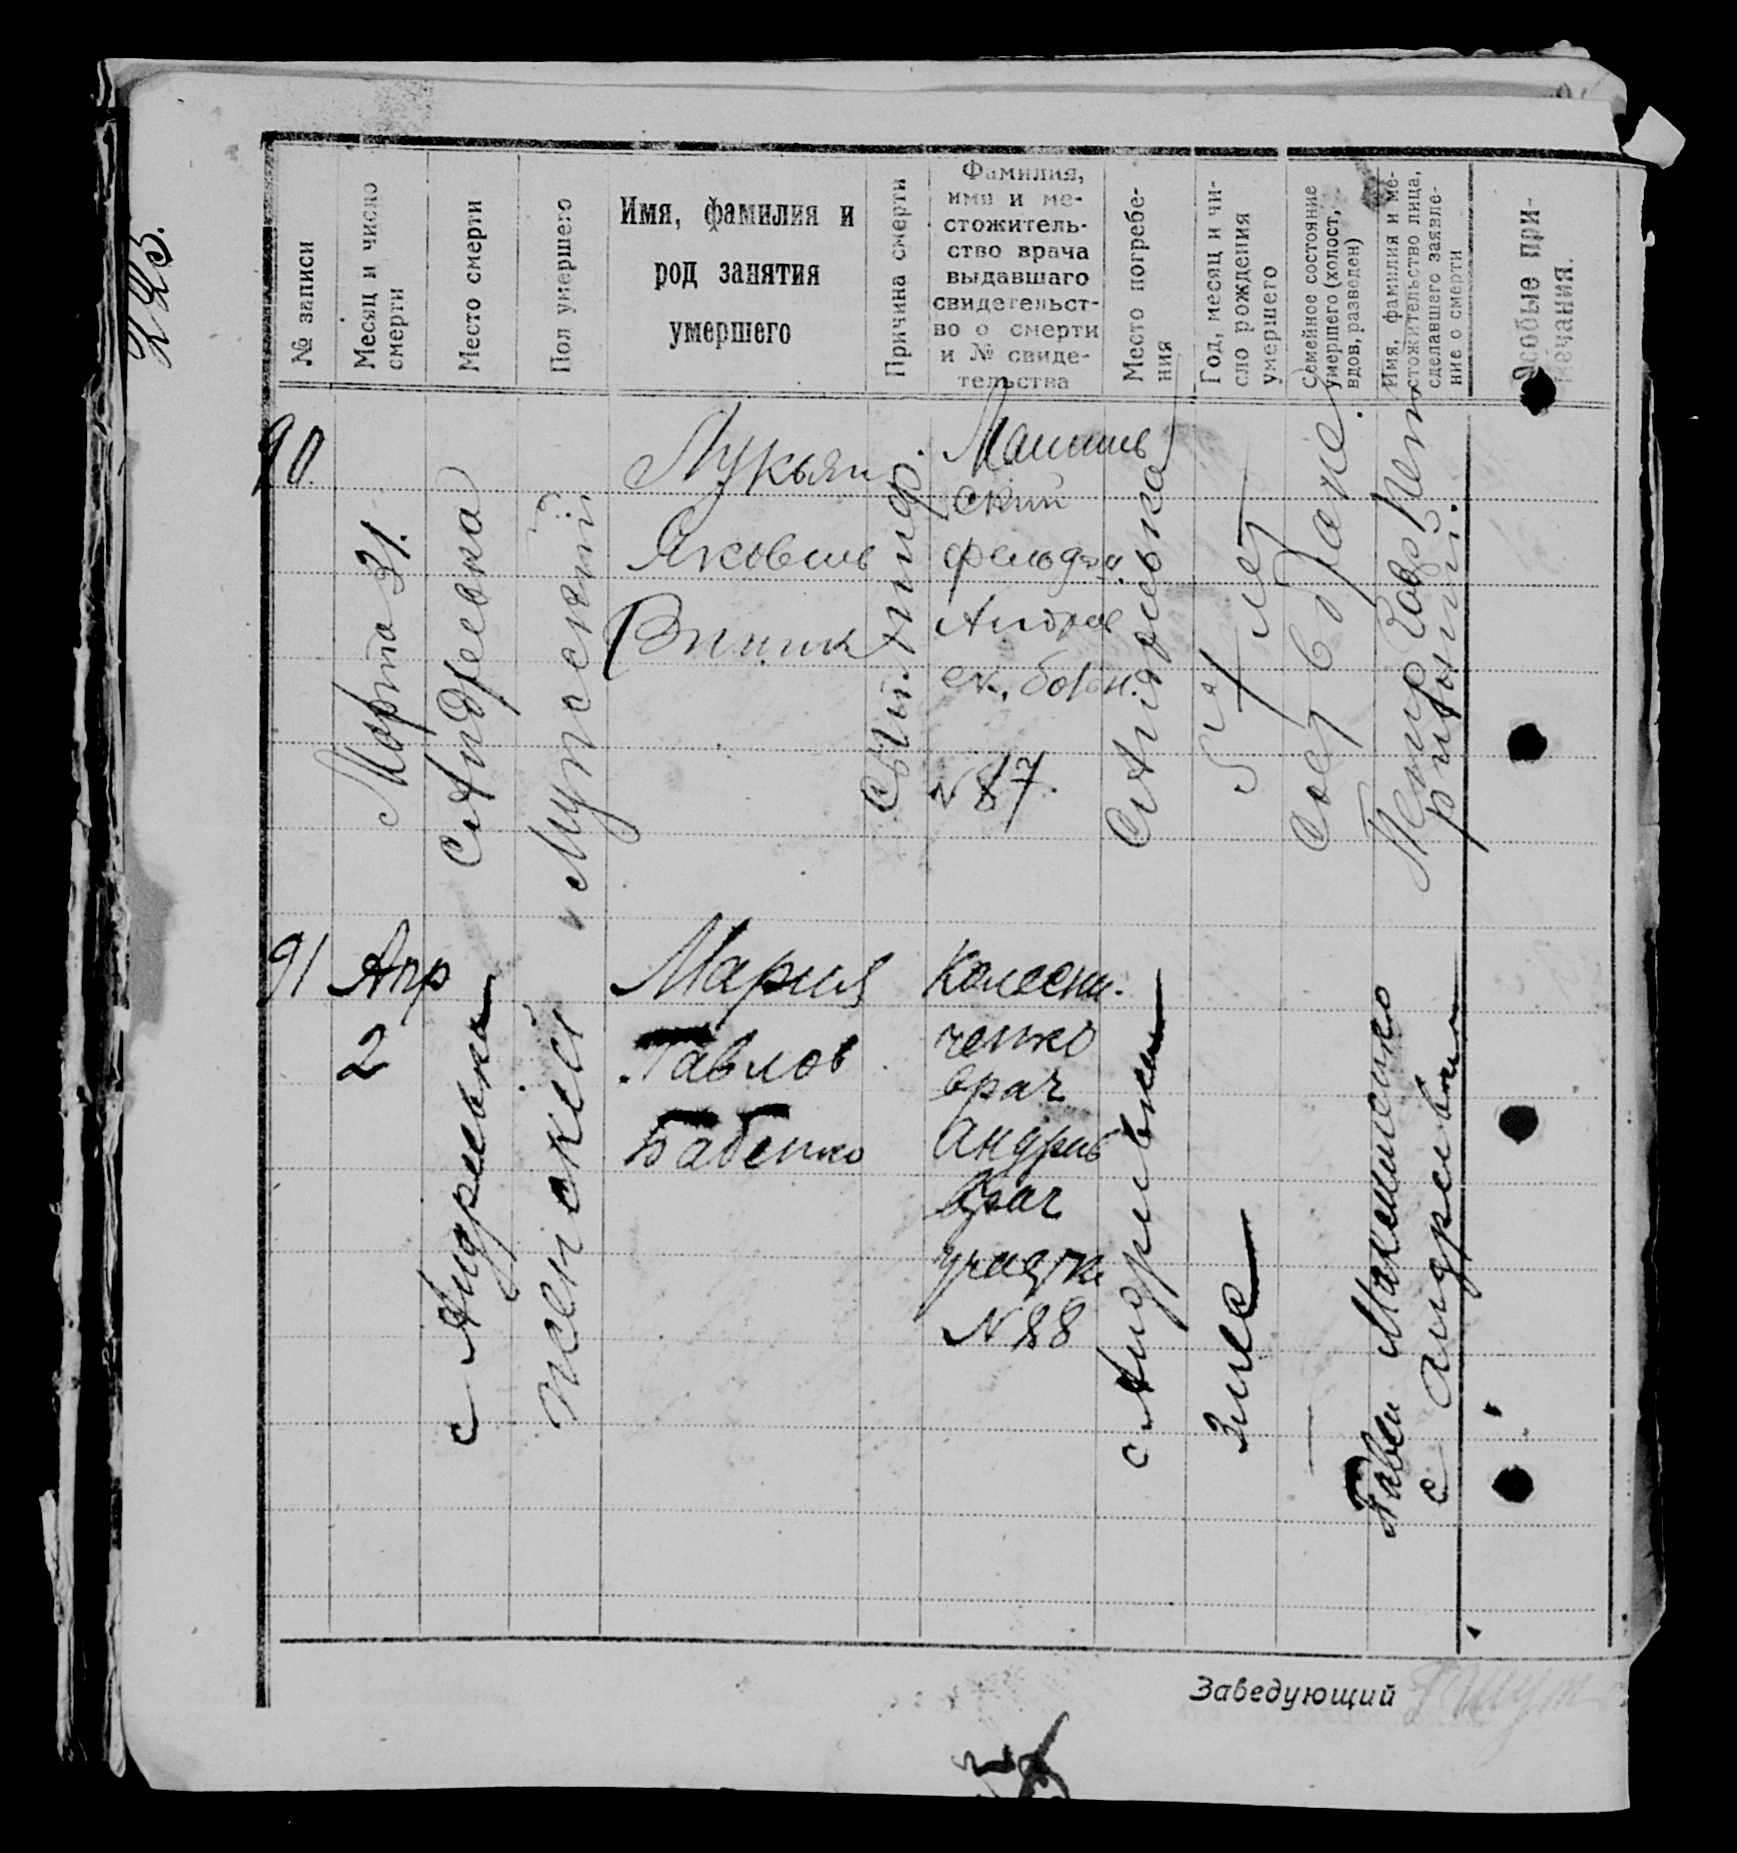 225.
№ записи
Месяц и число
смерти
Место смерти
Пол умершего
Имя, фамилия и
род занятия
умершего
Причина смерти
Фамилия,
имя и ме-
стожитель-
ство врача
выдавшаго
свидетельст-
во о смерти
и № свиде-
тельства
Место погребе-
ния
Год, месяц и чи-
сло рождения
умершего
Семейное состояние
умершего (холост,
вдов, разведен)
Имя, фамилия и ме-
стожительство лица,
сделавшего заявле-
ние о смерти
Особые при-
мечания.
90.
Марта 31.
с Андреевка
Мужский
Лукьян
Яковлев
Винник
Сып. тиф.
ский
фельдш.
Андрее
ск. больн.
№ 87.
с Андреевка
51 лет
Сост в браке.
Петр
91
Апр
2
с Андреевка
Женский
Мария
Павлов
Бабенко
Колесни-
ченко
врач
Андреев
врач
участка
№ 88
с Андреевка
Павел Максименко
с Андреевки
Заведующий